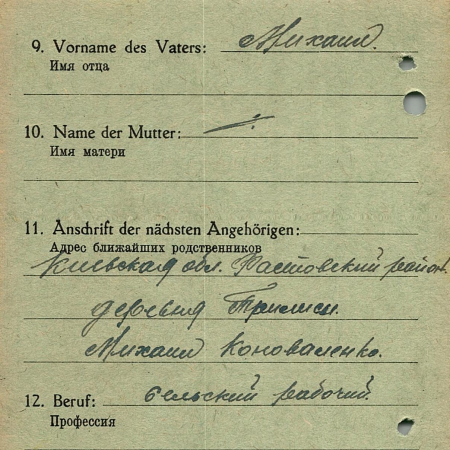 9. Vorname des Vaters: Михаил.
Имя отца
10. Name der Mutter:
Имя матери
11. Anschrift der nächsten Angehörigen:
Адрес ближайших родственников
Киевская обл. Фастовский район.
деревня Трилисы.
Михаил Коноваленко.
12. Beruf: сельский рабочий.
Профессия